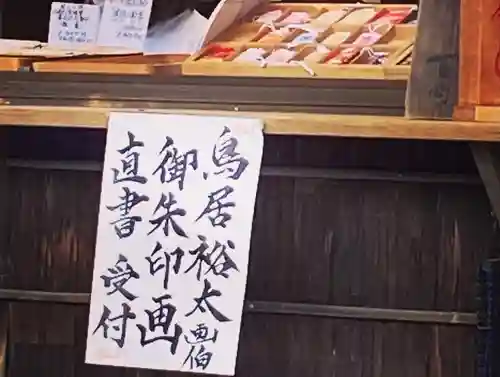 鳥居裕太画伯
御朱印画
直書 受付